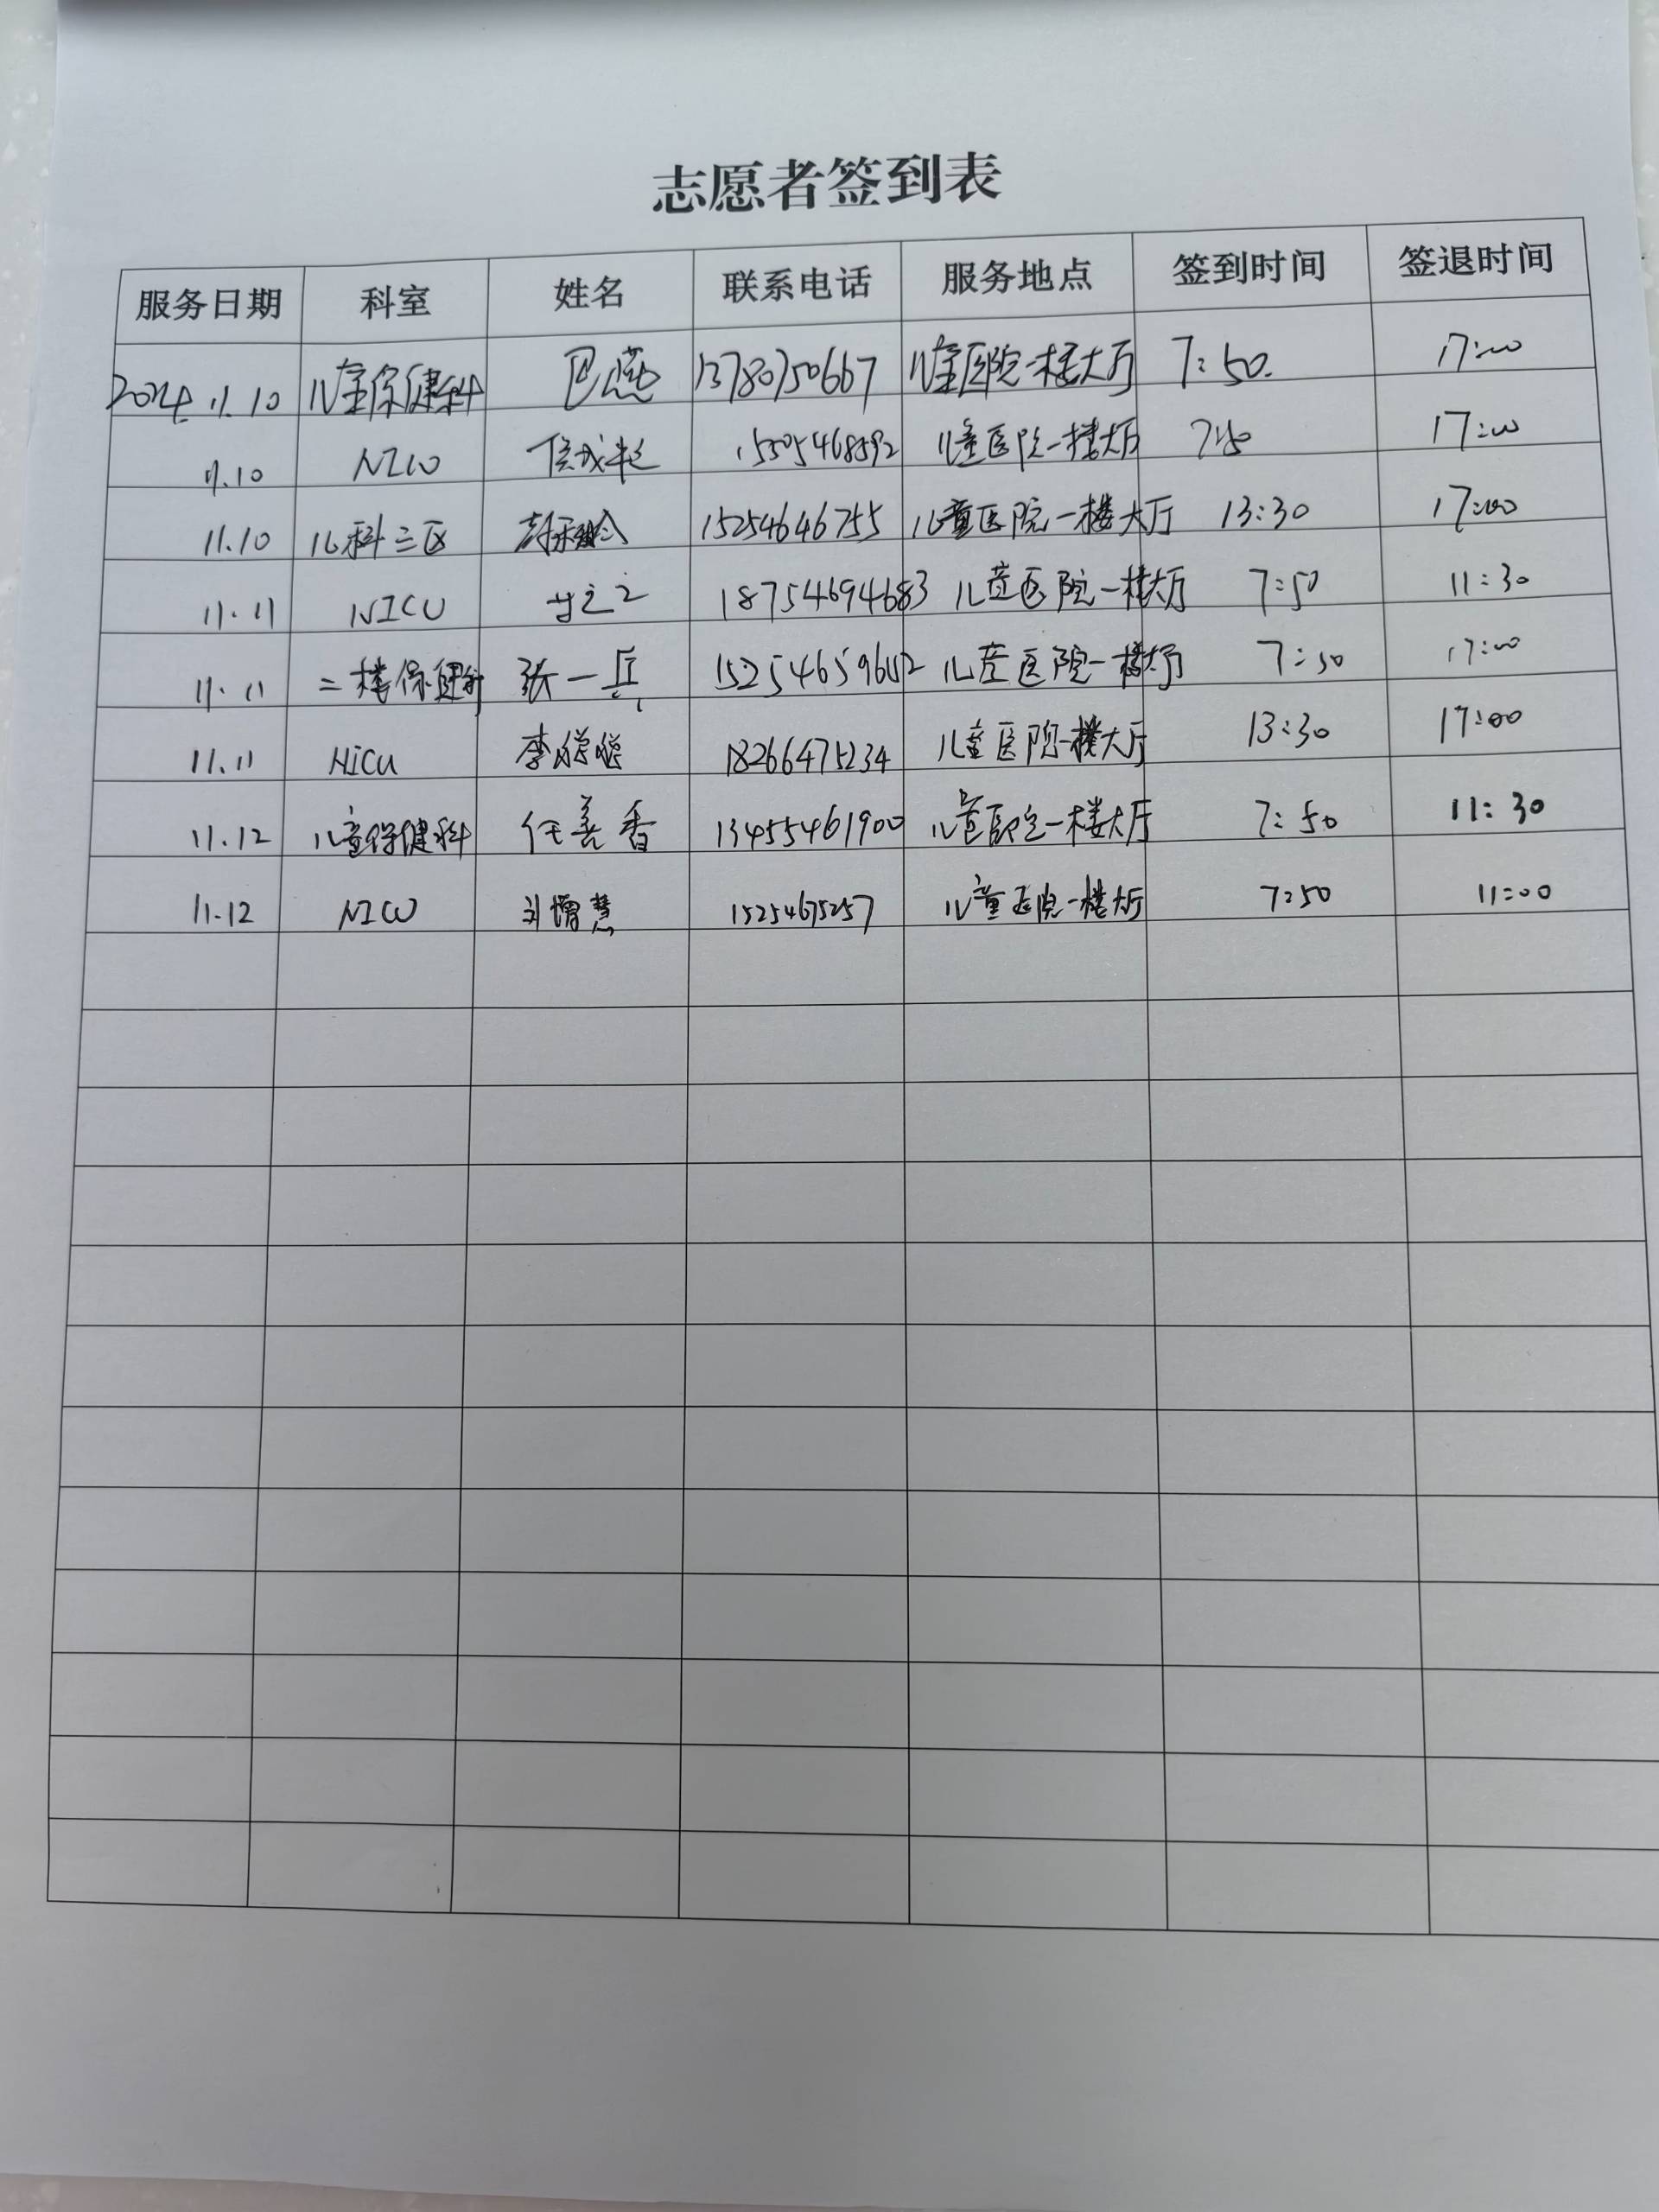 志愿者签到表
服务日期 科室 姓名 联系电话 服务地点 签到时间 签退时间
2024.11.10 儿童保健科 巴燕 13780750667 儿童医院一楼大厅 7:50. 17:00
11.10 NICU 15305468592 儿童医院一楼大厅 7:50 17:00
11.10 儿科三区 15254646755 儿童医院一楼大厅 13:30 17:00
11.11 NICU 18754694683 儿童医院一楼大厅 7:50 11:30
11.11 二楼保健科 张一兵 儿童医院一楼大厅 7:50 17:00
11.11 NiCU 李聪聪 18266475234 儿童医院一楼大厅 13:30 17:00
11.12 儿童保健科 任善香 13455461900 儿童医院一楼大厅 7:50 11:30
11.12 NICU 刘增慧 15254675257 儿童医院一楼大厅 7:50 11:00